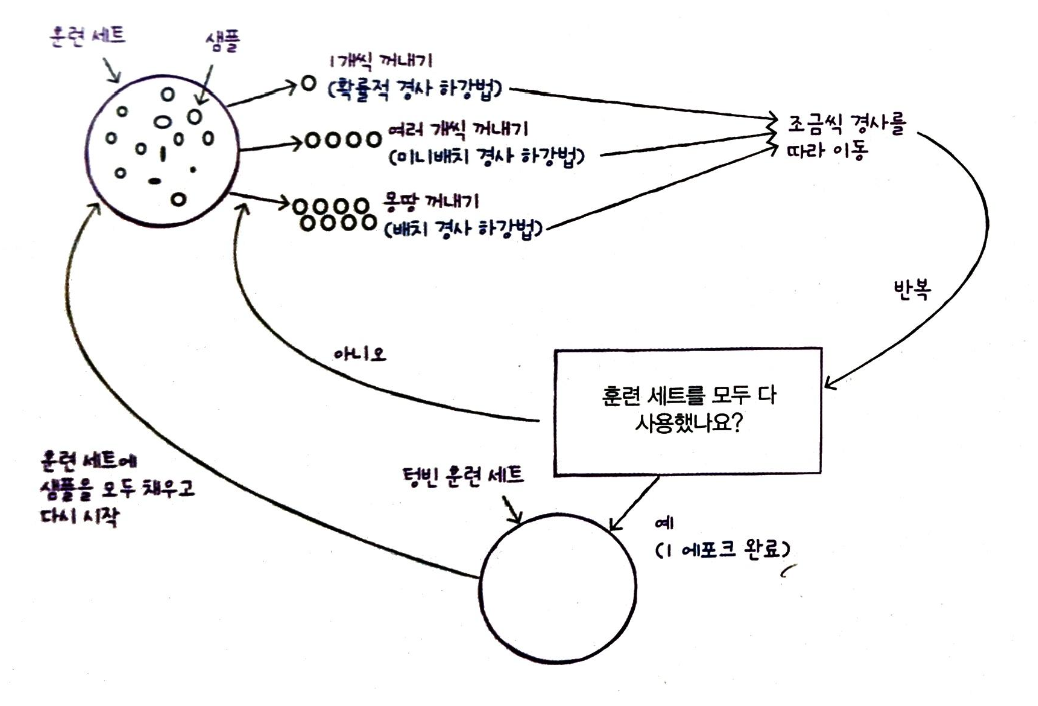 훈련 세트
샘플
1개씩 꺼내기
(확률적 경사 하강법)
여러 개씩 꺼내기
(미니배치 경사 하강법)
몽땅 꺼내기
(배치 경사 하강법)
조금씩 경사를
따라 이동
반복
아니오
훈련 세트를 모두 다
사용했나요?
훈련 세트에
샘플을 모두 채우고
다시 시작
텅빈 훈련 세트
예
(1 에포크 완료)